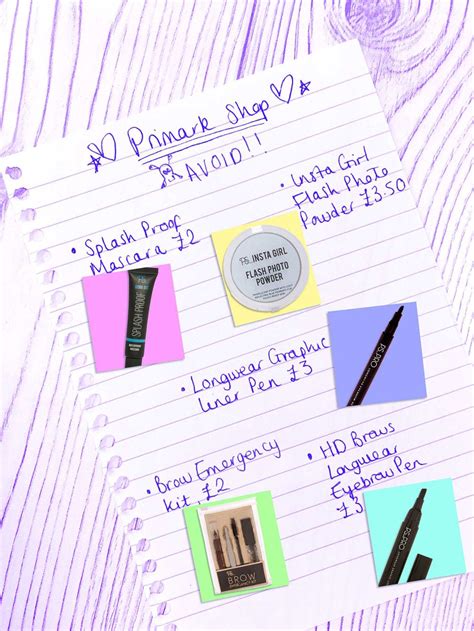 Primark Shop
AVOID!!
• Splash Proof
Mascara £2
• Insta Girl
Flash Photo
Powder £3.50
PS... INSTA GIRL
FLASH PHOTO
POWDER
PS...
SPLASH PROOF
• Longwear Graphic
liner Pen £3
PS.PRO
• Brow Emergency
Kit, £2
• HD Brows
Longwear
Eyebrow Pen
£3
PS...
BROW
PS.PRO